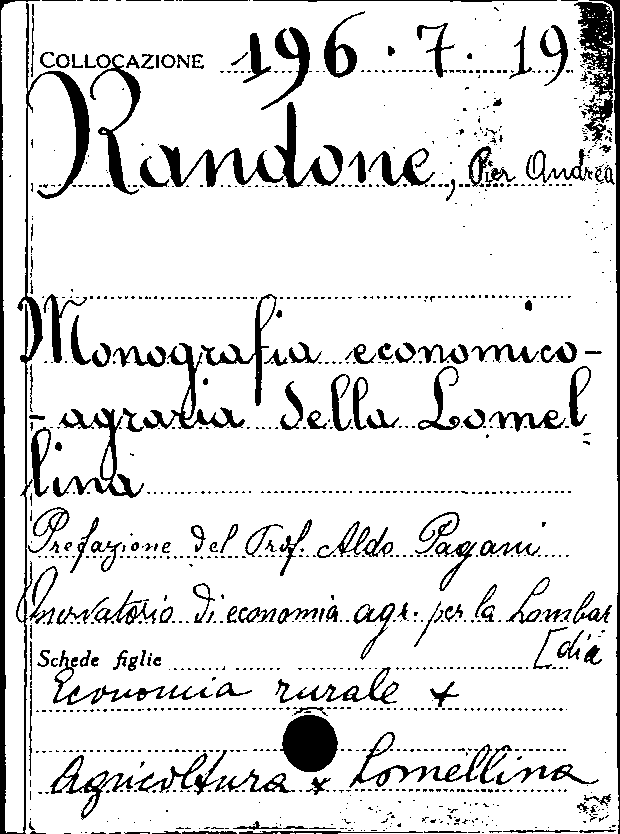 COLLOCAZIONE 196.7.19
Randone, Pier Andrea
Monografia economico-
-agraria della Lomel=
lina
Prefazione del Prof. Aldo Pagani
Osservatorio di economia agr. per la Lombar
[dia
Schede figlie
Economia rurale +
Agricoltura + Lomellina